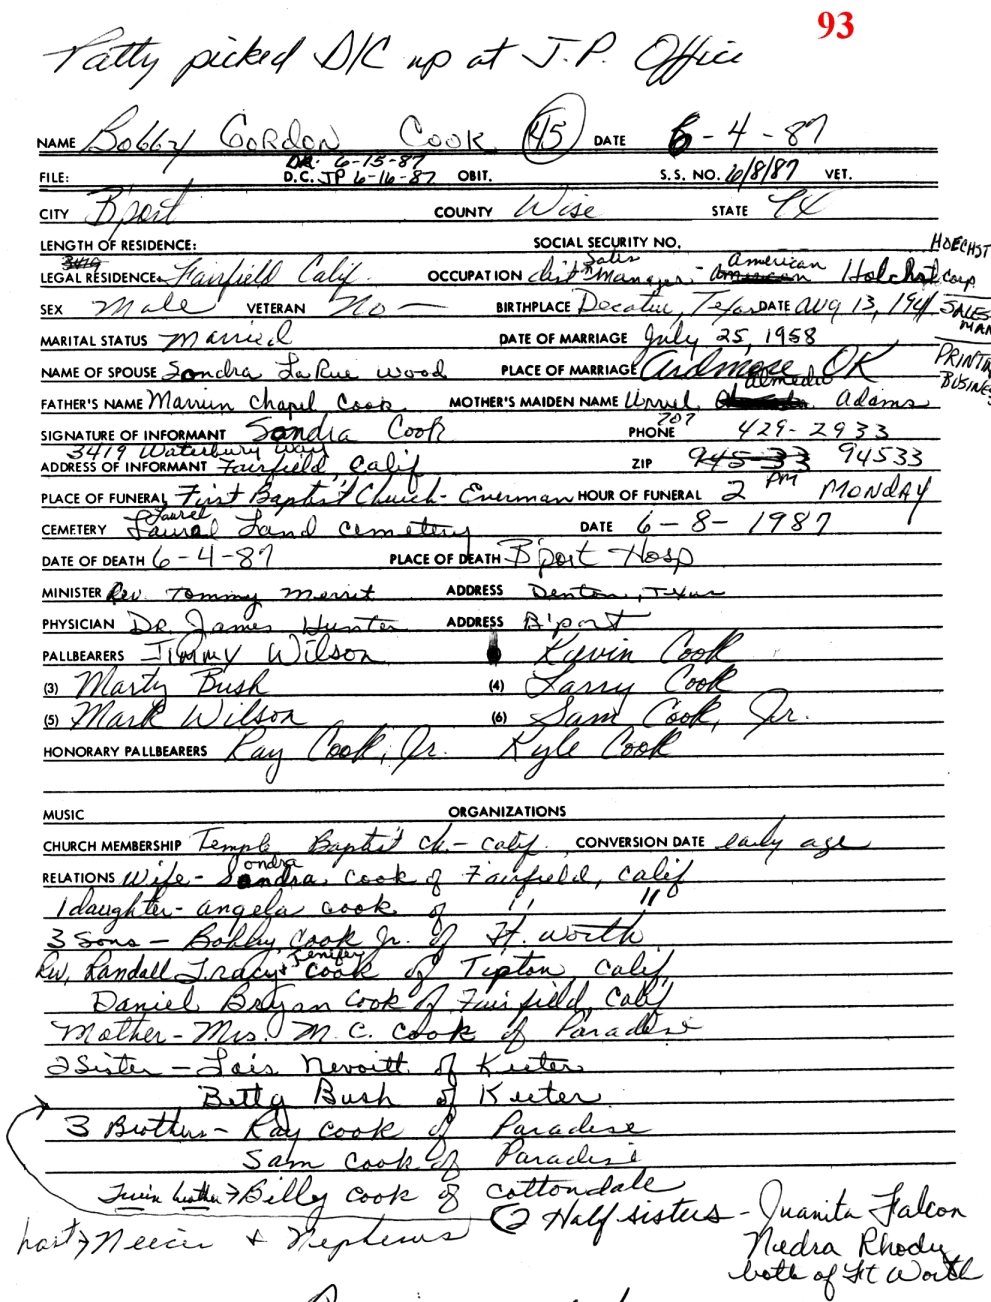 93
Patty picked D/C up at J.P. Office
NAME Bobby Gordon Cook (45) DATE 6-4-87
DR: 6-15-87
FILE: D.C. JP 6-16-87 OBIT. S.S. NO. 6/8/87 VET.
CITY B'port COUNTY Wise STATE TX
LENGTH OF RESIDENCE: SOCIAL SECURITY NO. HOECHST
3419 Sales American
LEGAL RESIDENCE Fairfield Calif. OCCUPATION dist manager - American Holchst Corp
SEX Male VETERAN No — BIRTHPLACE Decatur, Texas DATE Aug 13, 1941 SALES MAN
MARITAL STATUS Married DATE OF MARRIAGE July 25, 1958
NAME OF SPOUSE Sondra LaRue Wood PLACE OF MARRIAGE Ardmore OK PRINTIN BUSINES
almedia
FATHER'S NAME Marvin Chapel Cook MOTHER'S MAIDEN NAME Adams
SIGNATURE OF INFORMANT Sondra Cook PHONE 707 429-2933
3419 Waterbury Way
ADDRESS OF INFORMANT Fairfield, Calif ZIP 94533 94533
PLACE OF FUNERAL First Baptist Church - Everman HOUR OF FUNERAL 2 PM MONDAY
Laurel
CEMETERY Laural Land Cemetery DATE 6-8-1987
DATE OF DEATH 6-4-87 PLACE OF DEATH B'port Hosp
MINISTER Rev. Tommy Merrit ADDRESS Denton, Texas
PHYSICIAN DR. James Hunter ADDRESS B'port
PALLBEARERS Jimmy Wilson Kevin Cook
(3) Marty Bush (4) Larry Cook
(5) Mark Wilson (6) Sam Cook, Jr.
HONORARY PALLBEARERS Ray Cook, Jr. Kyle Cook
MUSIC ORGANIZATIONS
CHURCH MEMBERSHIP Temple Baptist Ch. - Calif. CONVERSION DATE early age
ondra
RELATIONS Wife - Sandra Cook of Fairfield, Calif
1 daughter - Angela Cook of " "
3 Sons - Bobby Cook Jr. of Ft. Worth
Rev. Randall Tracy & Jenifer Cook of Tipton, Calif
Daniel Bryan Cook of Fairfield, Calif
Mother - Mrs. M.C. Cook of Paradise
2 Sister - Lois Nevoitt of Keeter
Betty Bush of Keeter
3 Brothers - Ray Cook of Paradise
Sam Cook of Paradise
Twin brother → Billy Cook of Cottondale
2 Half sisters - Juanita Falcon
host → Neeces & Nephews
Nedra Rhody
both of Ft Worth